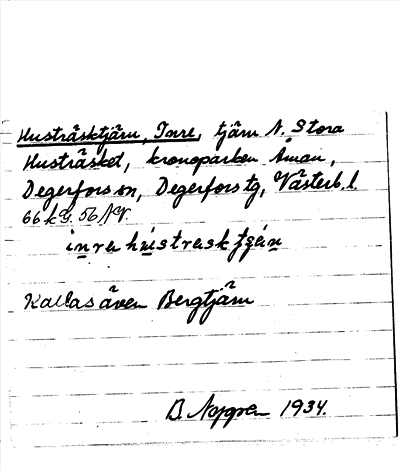 Husträsktjärn, Inre, tjärn N. Stora
Husträsket, kronoparken Åman,
Degerfors sn, Degerfors tg, Västerb. l.
66 k G. 56 N V.
inrahústrask
Kallas även Bergtjärn
B. Noggren 1934.